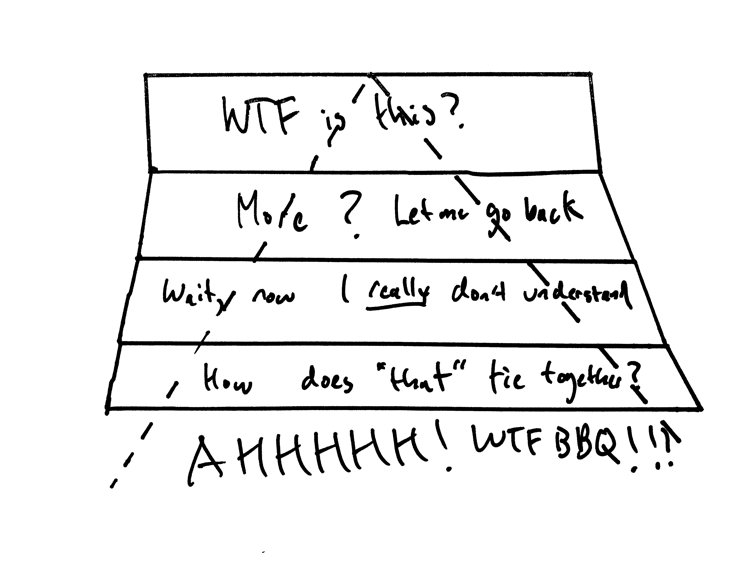 WTF is this?
More? Let me go back
Wait, now I really don't understand
How does "that" tie together?
AHHHHH! WTF BBQ!!!